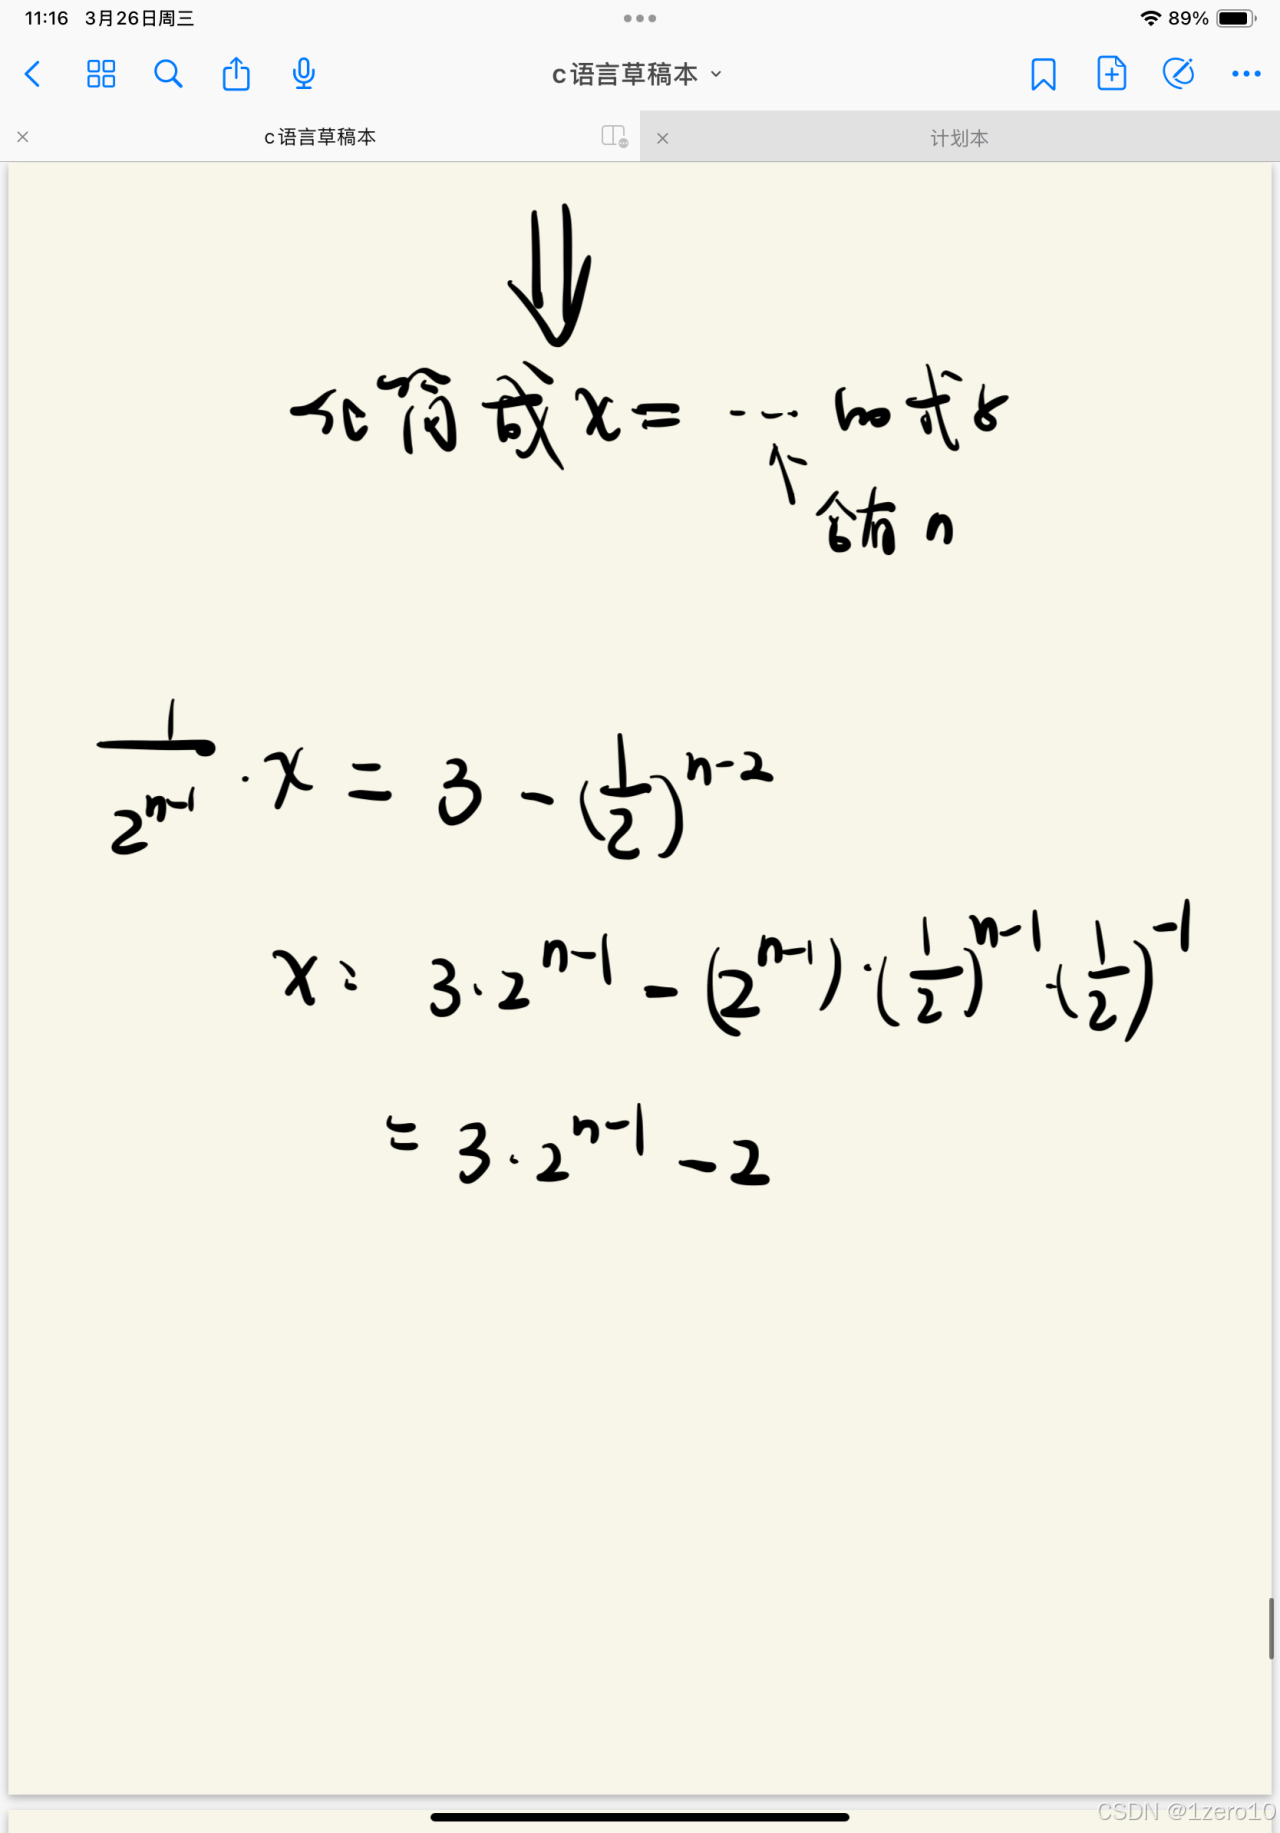 11:16 3月26日周三
89%
c语言草稿本
c语言草稿本
计划本
化简成 x = ... 的式子
含有 n
1/2^(n-1) · x = 3 - (1/2)^(n-2)
x = 3·2^(n-1) - (2^(n-1))·(1/2)^(n-1)·(1/2)^(-1)
= 3·2^(n-1) - 2
CSDN @1zero10